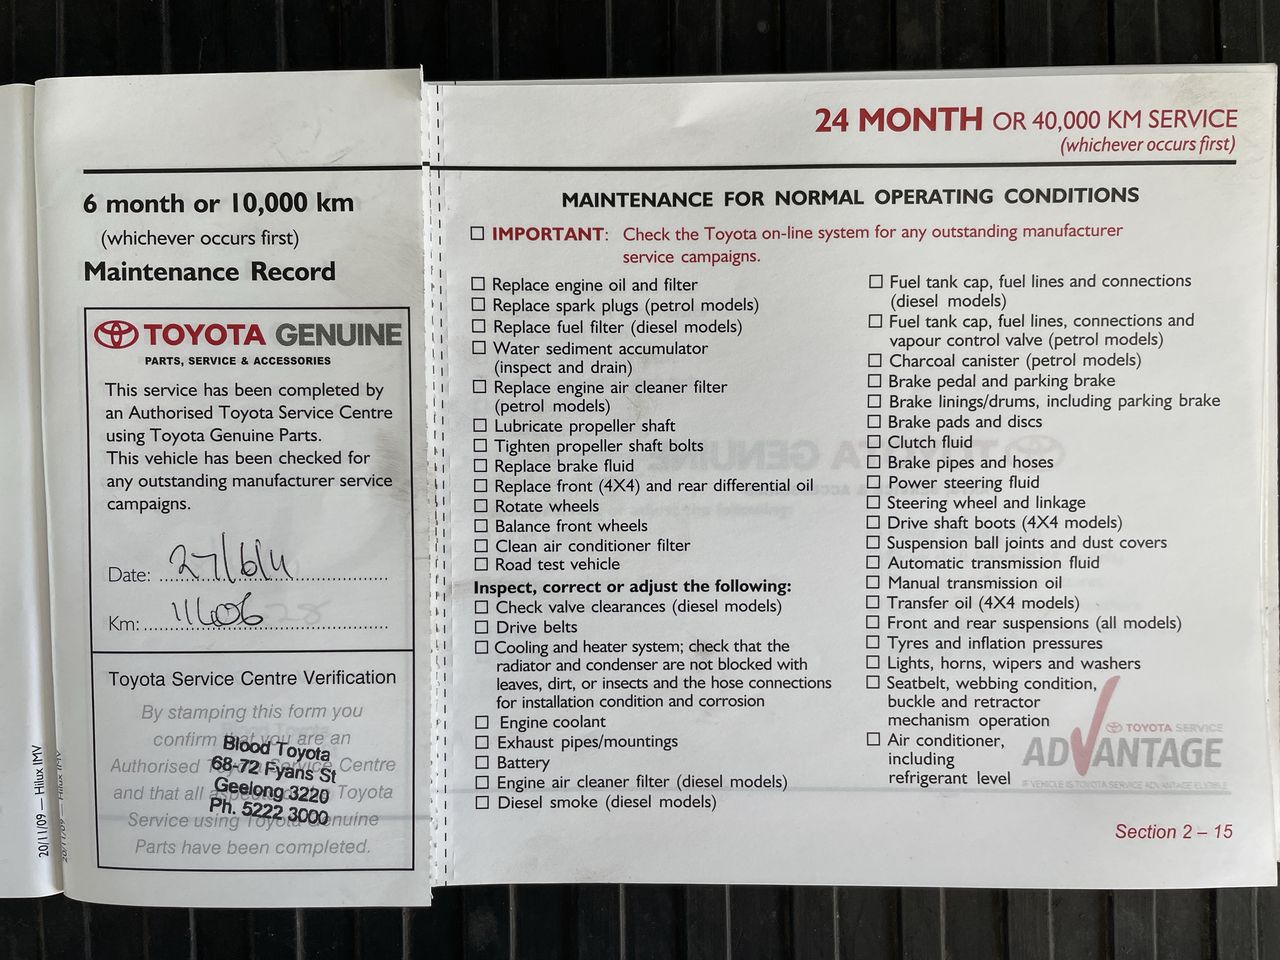 6 month or 10,000 km
(whichever occurs first)
Maintenance Record
TOYOTA GENUINE
PARTS, SERVICE & ACCESSORIES
This service has been completed by
an Authorised Toyota Service Centre
using Toyota Genuine Parts.
This vehicle has been checked for
any outstanding manufacturer service
campaigns.
Date: 27/6/11
Km: 11606
Toyota Service Centre Verification
By stamping this form you
confirm that you are an
Authorised Toyota Service Centre
and that all aspects of the Toyota
Service using Toyota Genuine
Parts have been completed.
Blood Toyota
68-72 Fyans St
Geelong 3220
Ph. 5222 3000
20/11/09 — Hilux IMV
24 MONTH OR 40,000 KM SERVICE
(whichever occurs first)
MAINTENANCE FOR NORMAL OPERATING CONDITIONS
IMPORTANT: Check the Toyota on-line system for any outstanding manufacturer
service campaigns.
Replace engine oil and filter
Replace spark plugs (petrol models)
Replace fuel filter (diesel models)
Water sediment accumulator
(inspect and drain)
Replace engine air cleaner filter
(petrol models)
Lubricate propeller shaft
Tighten propeller shaft bolts
Replace brake fluid
Replace front (4X4) and rear differential oil
Rotate wheels
Balance front wheels
Clean air conditioner filter
Road test vehicle
Inspect, correct or adjust the following:
Check valve clearances (diesel models)
Drive belts
Cooling and heater system; check that the
radiator and condenser are not blocked with
leaves, dirt, or insects and the hose connections
for installation condition and corrosion
Engine coolant
Exhaust pipes/mountings
Battery
Engine air cleaner filter (diesel models)
Diesel smoke (diesel models)
Fuel tank cap, fuel lines and connections
(diesel models)
Fuel tank cap, fuel lines, connections and
vapour control valve (petrol models)
Charcoal canister (petrol models)
Brake pedal and parking brake
Brake linings/drums, including parking brake
Brake pads and discs
Clutch fluid
Brake pipes and hoses
Power steering fluid
Steering wheel and linkage
Drive shaft boots (4X4 models)
Suspension ball joints and dust covers
Automatic transmission fluid
Manual transmission oil
Transfer oil (4X4 models)
Front and rear suspensions (all models)
Tyres and inflation pressures
Lights, horns, wipers and washers
Seatbelt, webbing condition,
buckle and retractor
mechanism operation
Air conditioner,
including
refrigerant level
TOYOTA SERVICE
ADVANTAGE
IF VEHICLE IS TOYOTA SERVICE ADVANTAGE ELIGIBLE
Section 2 – 15